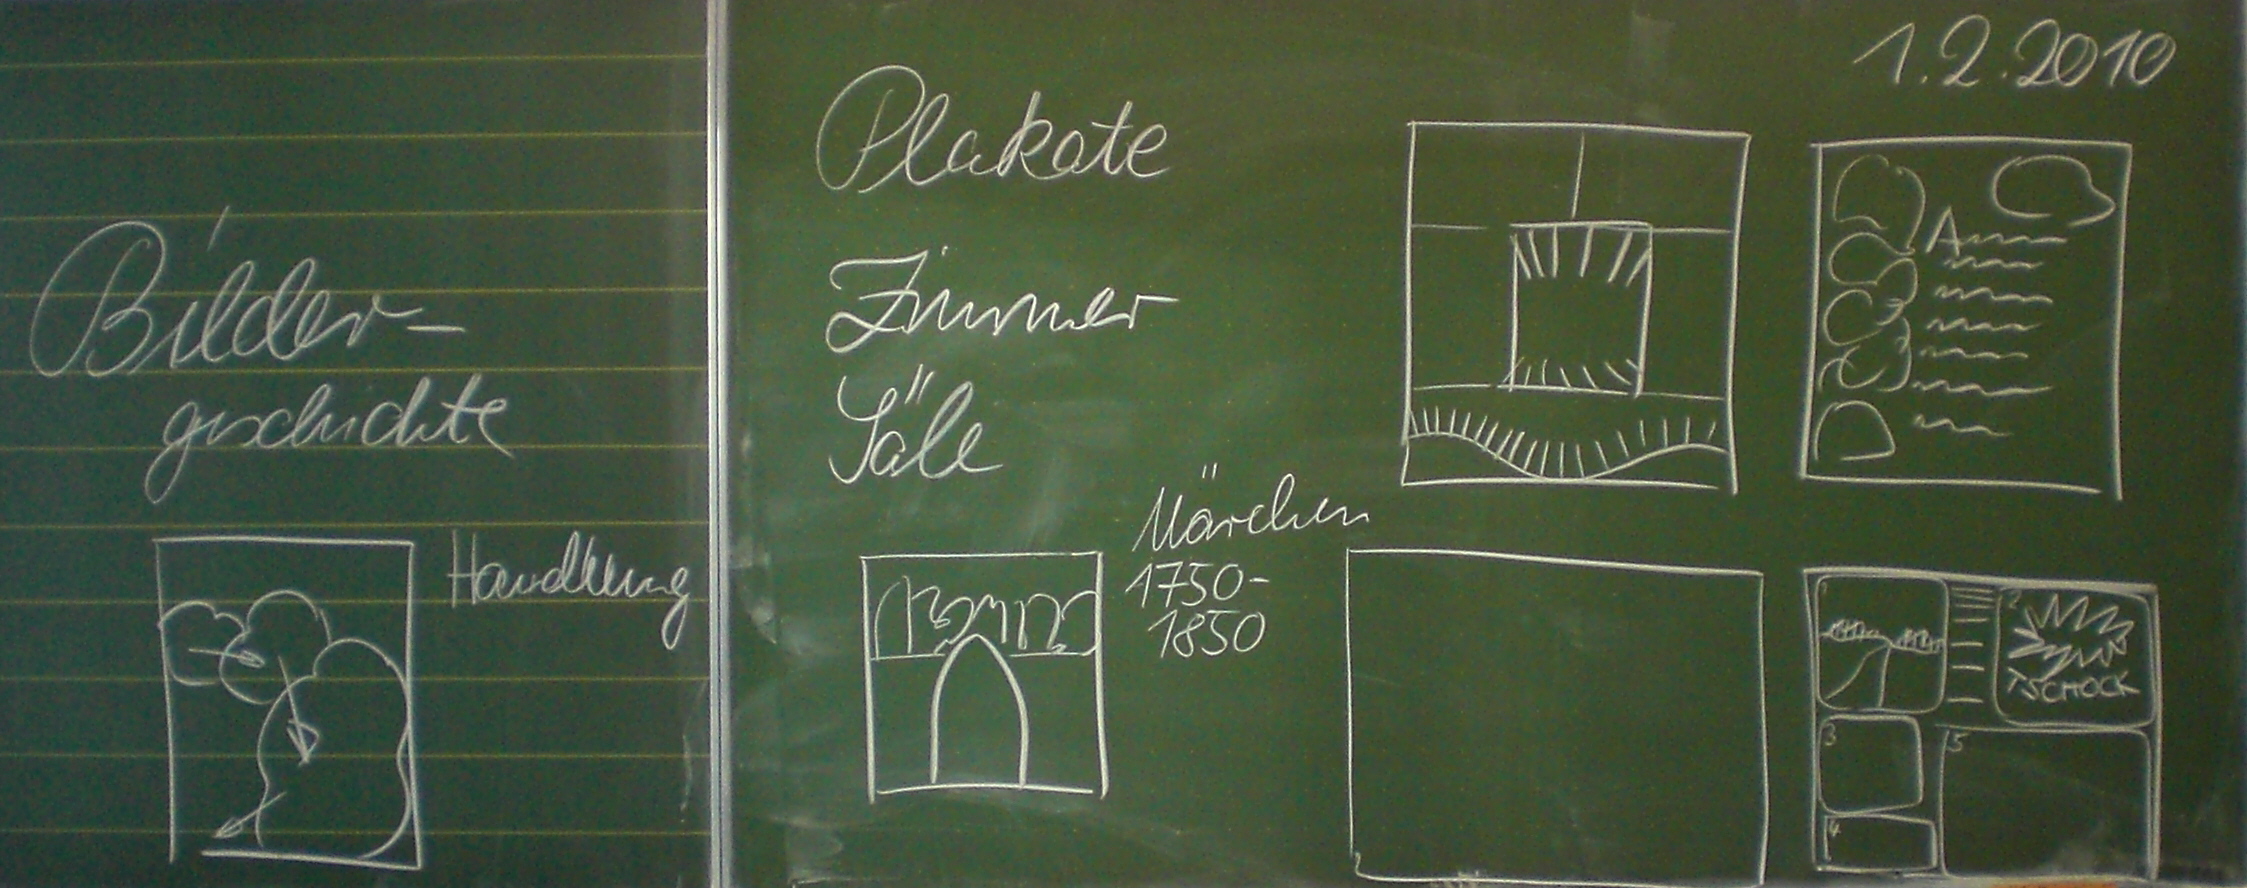 Bilder-
geschichte
Handlung
1.2.2010
Plakate
Zimmer
Säle
Märchen
1750-
1850
A
1
2
TSCHOCK
3
4
5